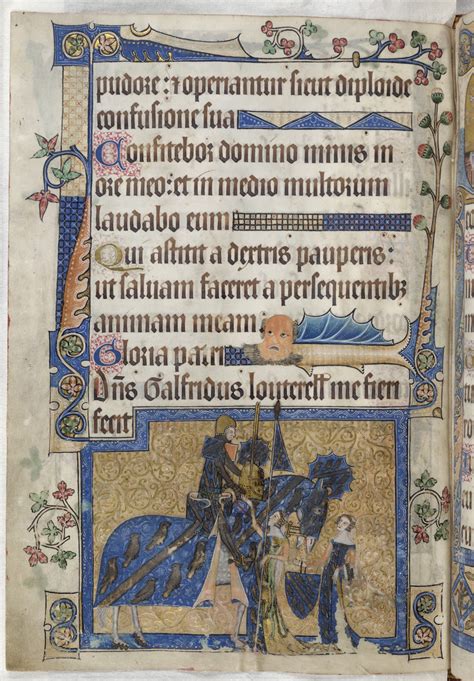 pudore: et operiantur sicut diploide
confusione sua
Confitebor domino nimis in
ore meo: et in medio multorum
laudabo eum
Qui astitit a dextris pauperis:
ut saluam faceret a persequentibꝫ
animam meam
Gloria patri
Dn̄s Galfridus louterell me fieri
fecit